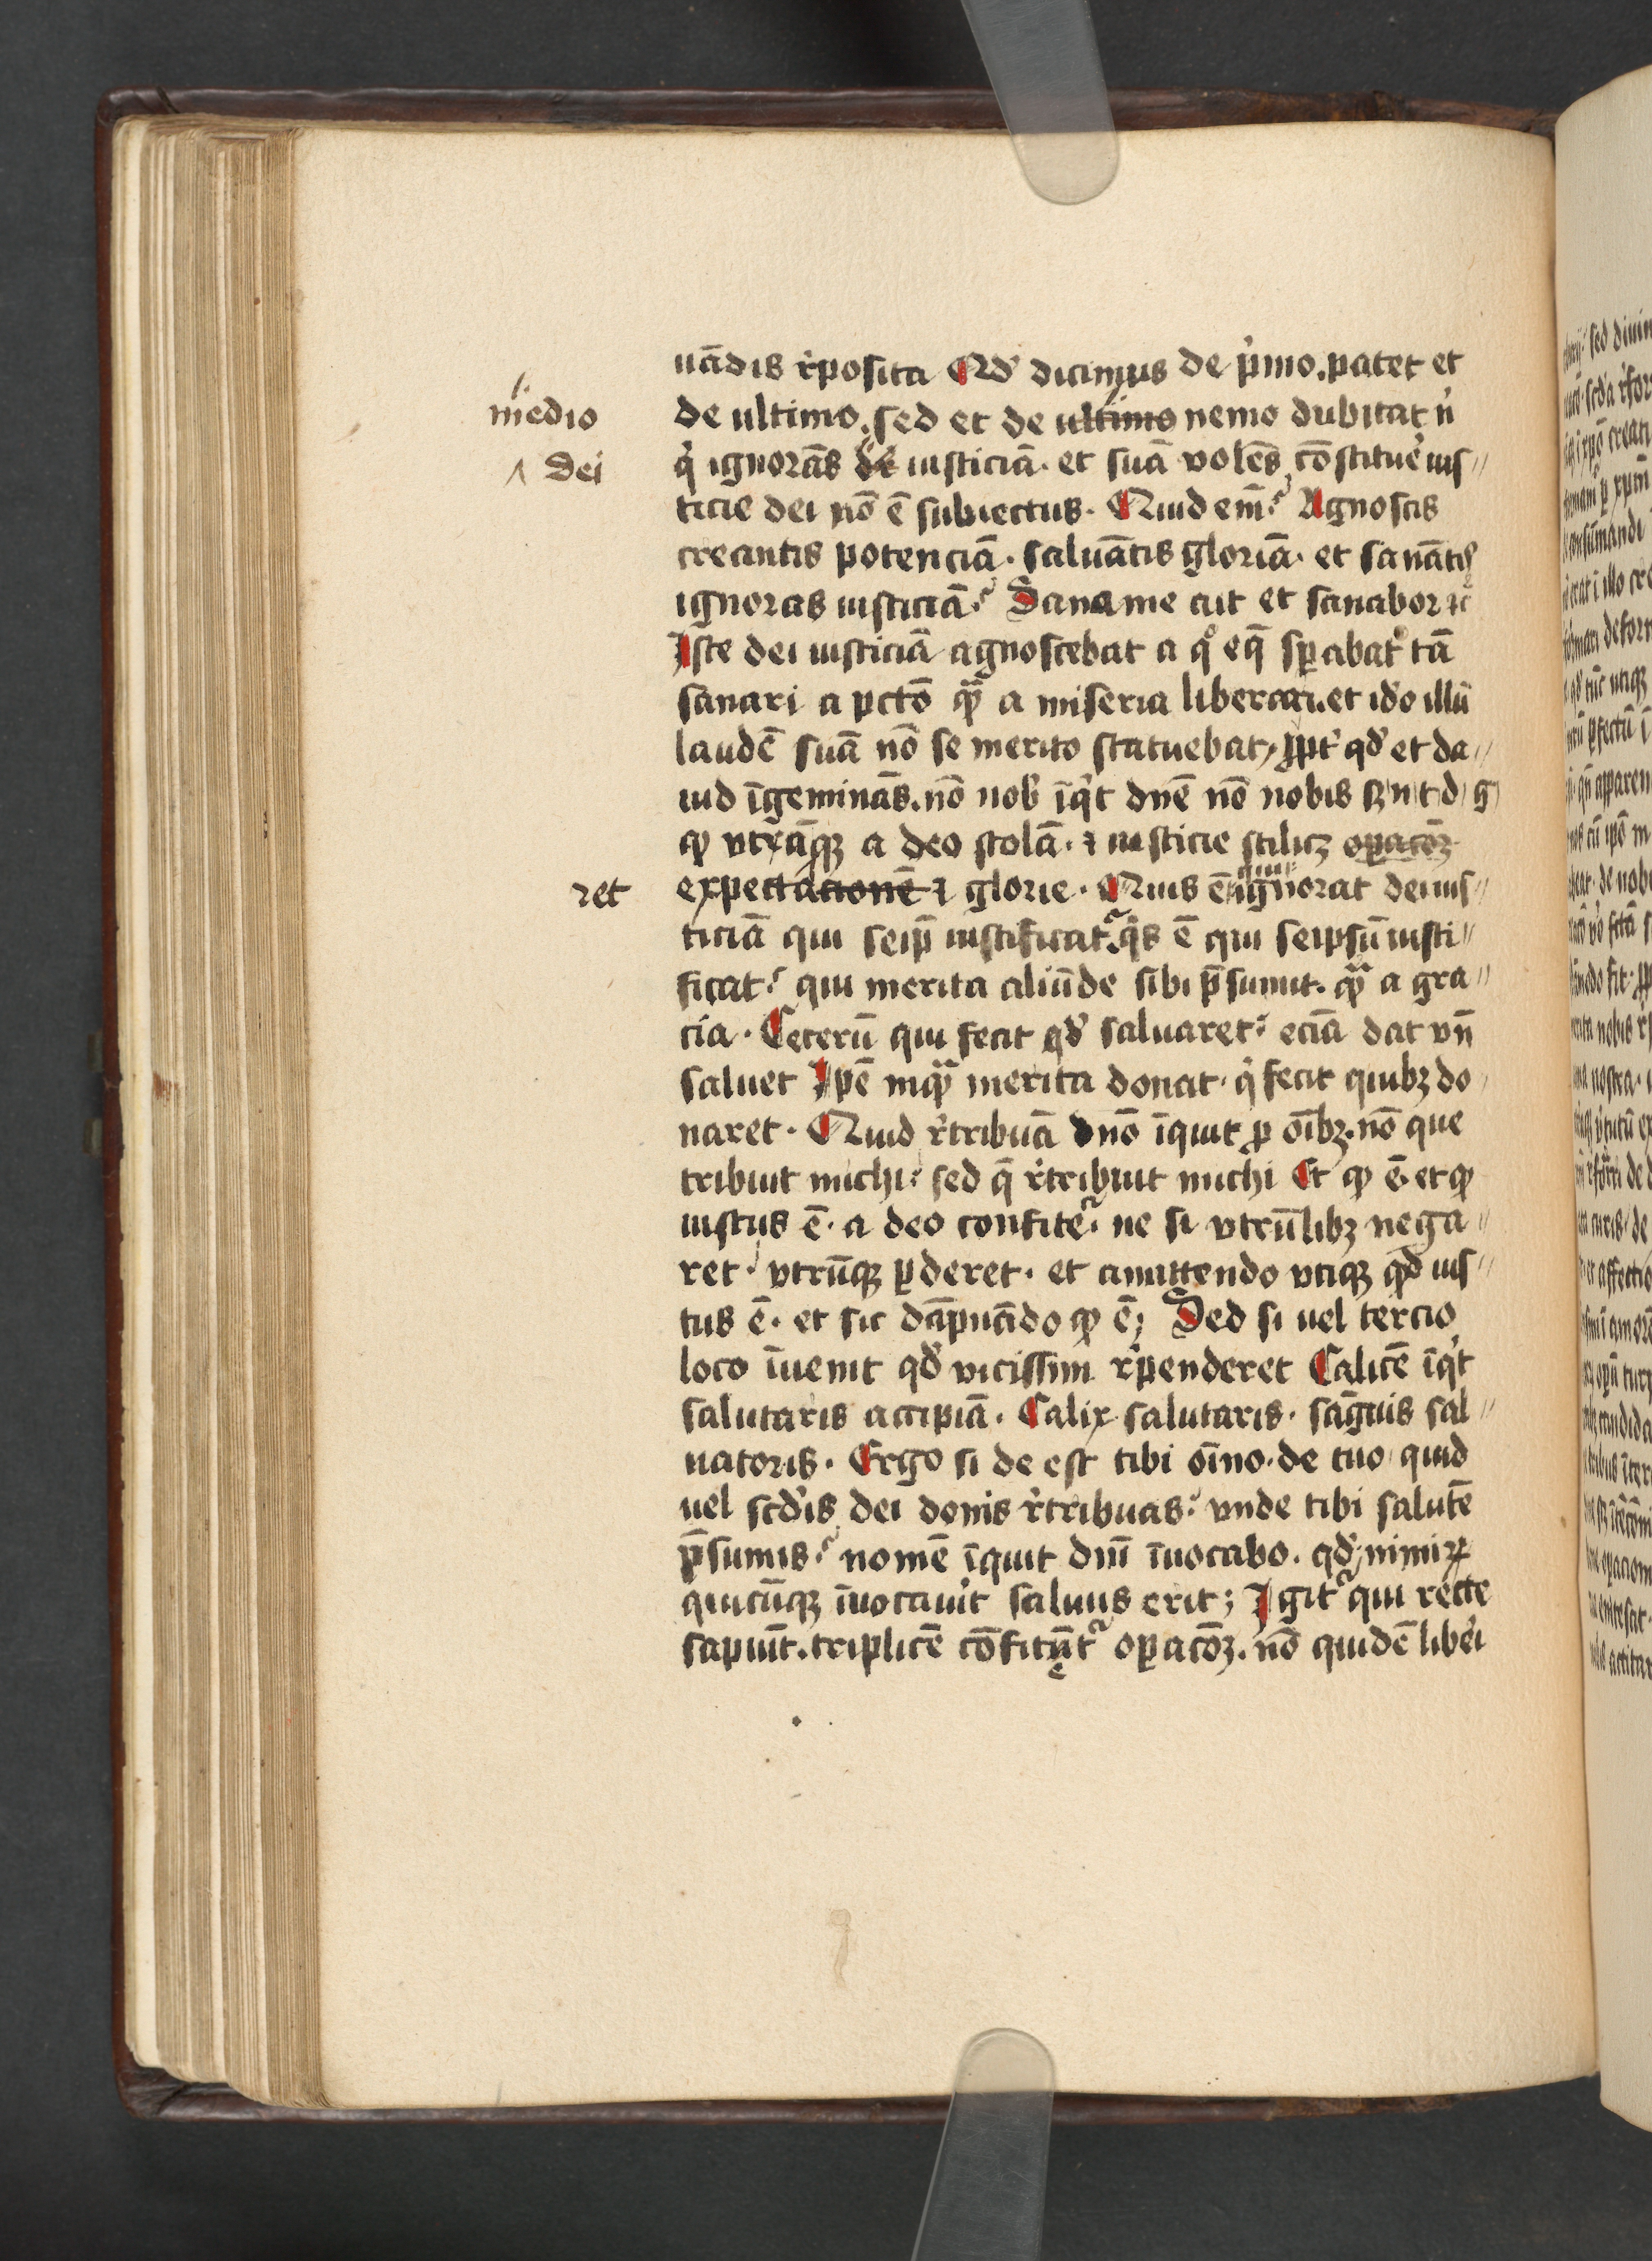 uādis r̉posita Qd̉ dicimus de p̉mo. patet et
medio
de ultimo. sed et de ultimo nemo dubitat n̉
dei
q̉ ignorās de iusticiā. et suā volēs cōstitue̛ ius〃
ticie dei nō ē subiectus. Quid em̄? Agnoscis
creantis potenciā. saluātis gloriā. et sanātis
ignoras iusticiā? Sana me ait et sanabor ⁊c̄
Iste dei iusticiā agnoscebat a qͦ eq̄ sꝑabat᷑ tā
sanari a pctō qͣꝫ a miseria liberari. et id̉o illū
laudē suā nō se merito statuebat, ꝓpt̉ qd̉ et da〃
uid īgeminās. nō nob̉ īq̉t dn̄e nō nobis
qꝫ vtrāqꝫ a deo stolā. ⁊ iusticie scilicꝫ oꝑacōꝫ
ret
expectacionē ⁊ glorie. Quis ē qui ignorat dei ius〃
ticiā qui seip̄ iustificat. q̉s ē qui seipsū iusti〃
ficat? qui merita aliūde sibi p̄sumit. qͣꝫ a gra〃
cia. Ceterū qui fecit qd̉ saluaret? eciā dat vn̄
saluet Ip̄e inqͣꝫ merita donat. q̉ fecit quibꝫ do〃
naret. Quid r̉tribuā dn̄o īquit ꝓ oībꝫ. nō que
tribuit michi? sed q̄ r̉tribuit michi Et ꝙ ē. et ꝙ
iustus ē. a deo confite᷑. ne si vtrūlibꝫ nega〃
ret. vtrūqꝫ ꝑderet. et amittendo vtiqꝫ qd ius〃
tus ē. et sic dāpnādo ꝙ ē; Sed si uel tercio
loco īuenit qd̉ vicissim r̉penderet Calicē īq̉t
salutaris accipiā. Calix salutaris. sāguis sal〃
uatoris. Ergo si de est tibi oīno. de tuo quid
uel scd̉is dei donis r̉tribuas? vnde tibi salutē
p̄sumis? nomē īquit dn̄i īuocabo. qd̉ nimiꝝ
quicūqꝫ īuocaưit saluus erit; Igit᷑ qui recte
sapiūt. triplicē cōfitēt᷑ oꝑacōꝫ. nō quidē libe̛i